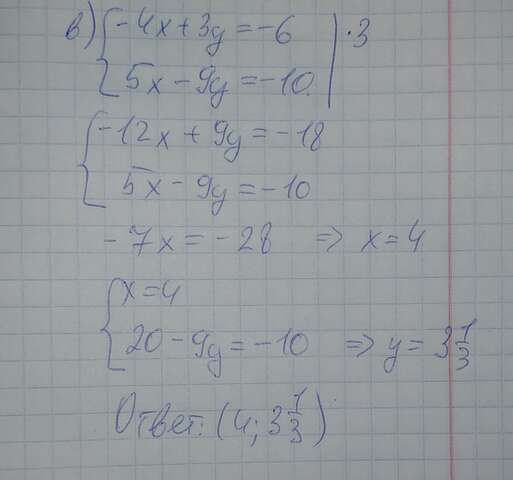 в) { -4x + 3y = -6 | · 3
5x - 9y = -10.
{ -12x + 9y = -18
5x - 9y = -10
-7x = -28 => x = 4
{ x = 4
20 - 9y = -10 => y = 3 1/3
Ответ: (4; 3 1/3)